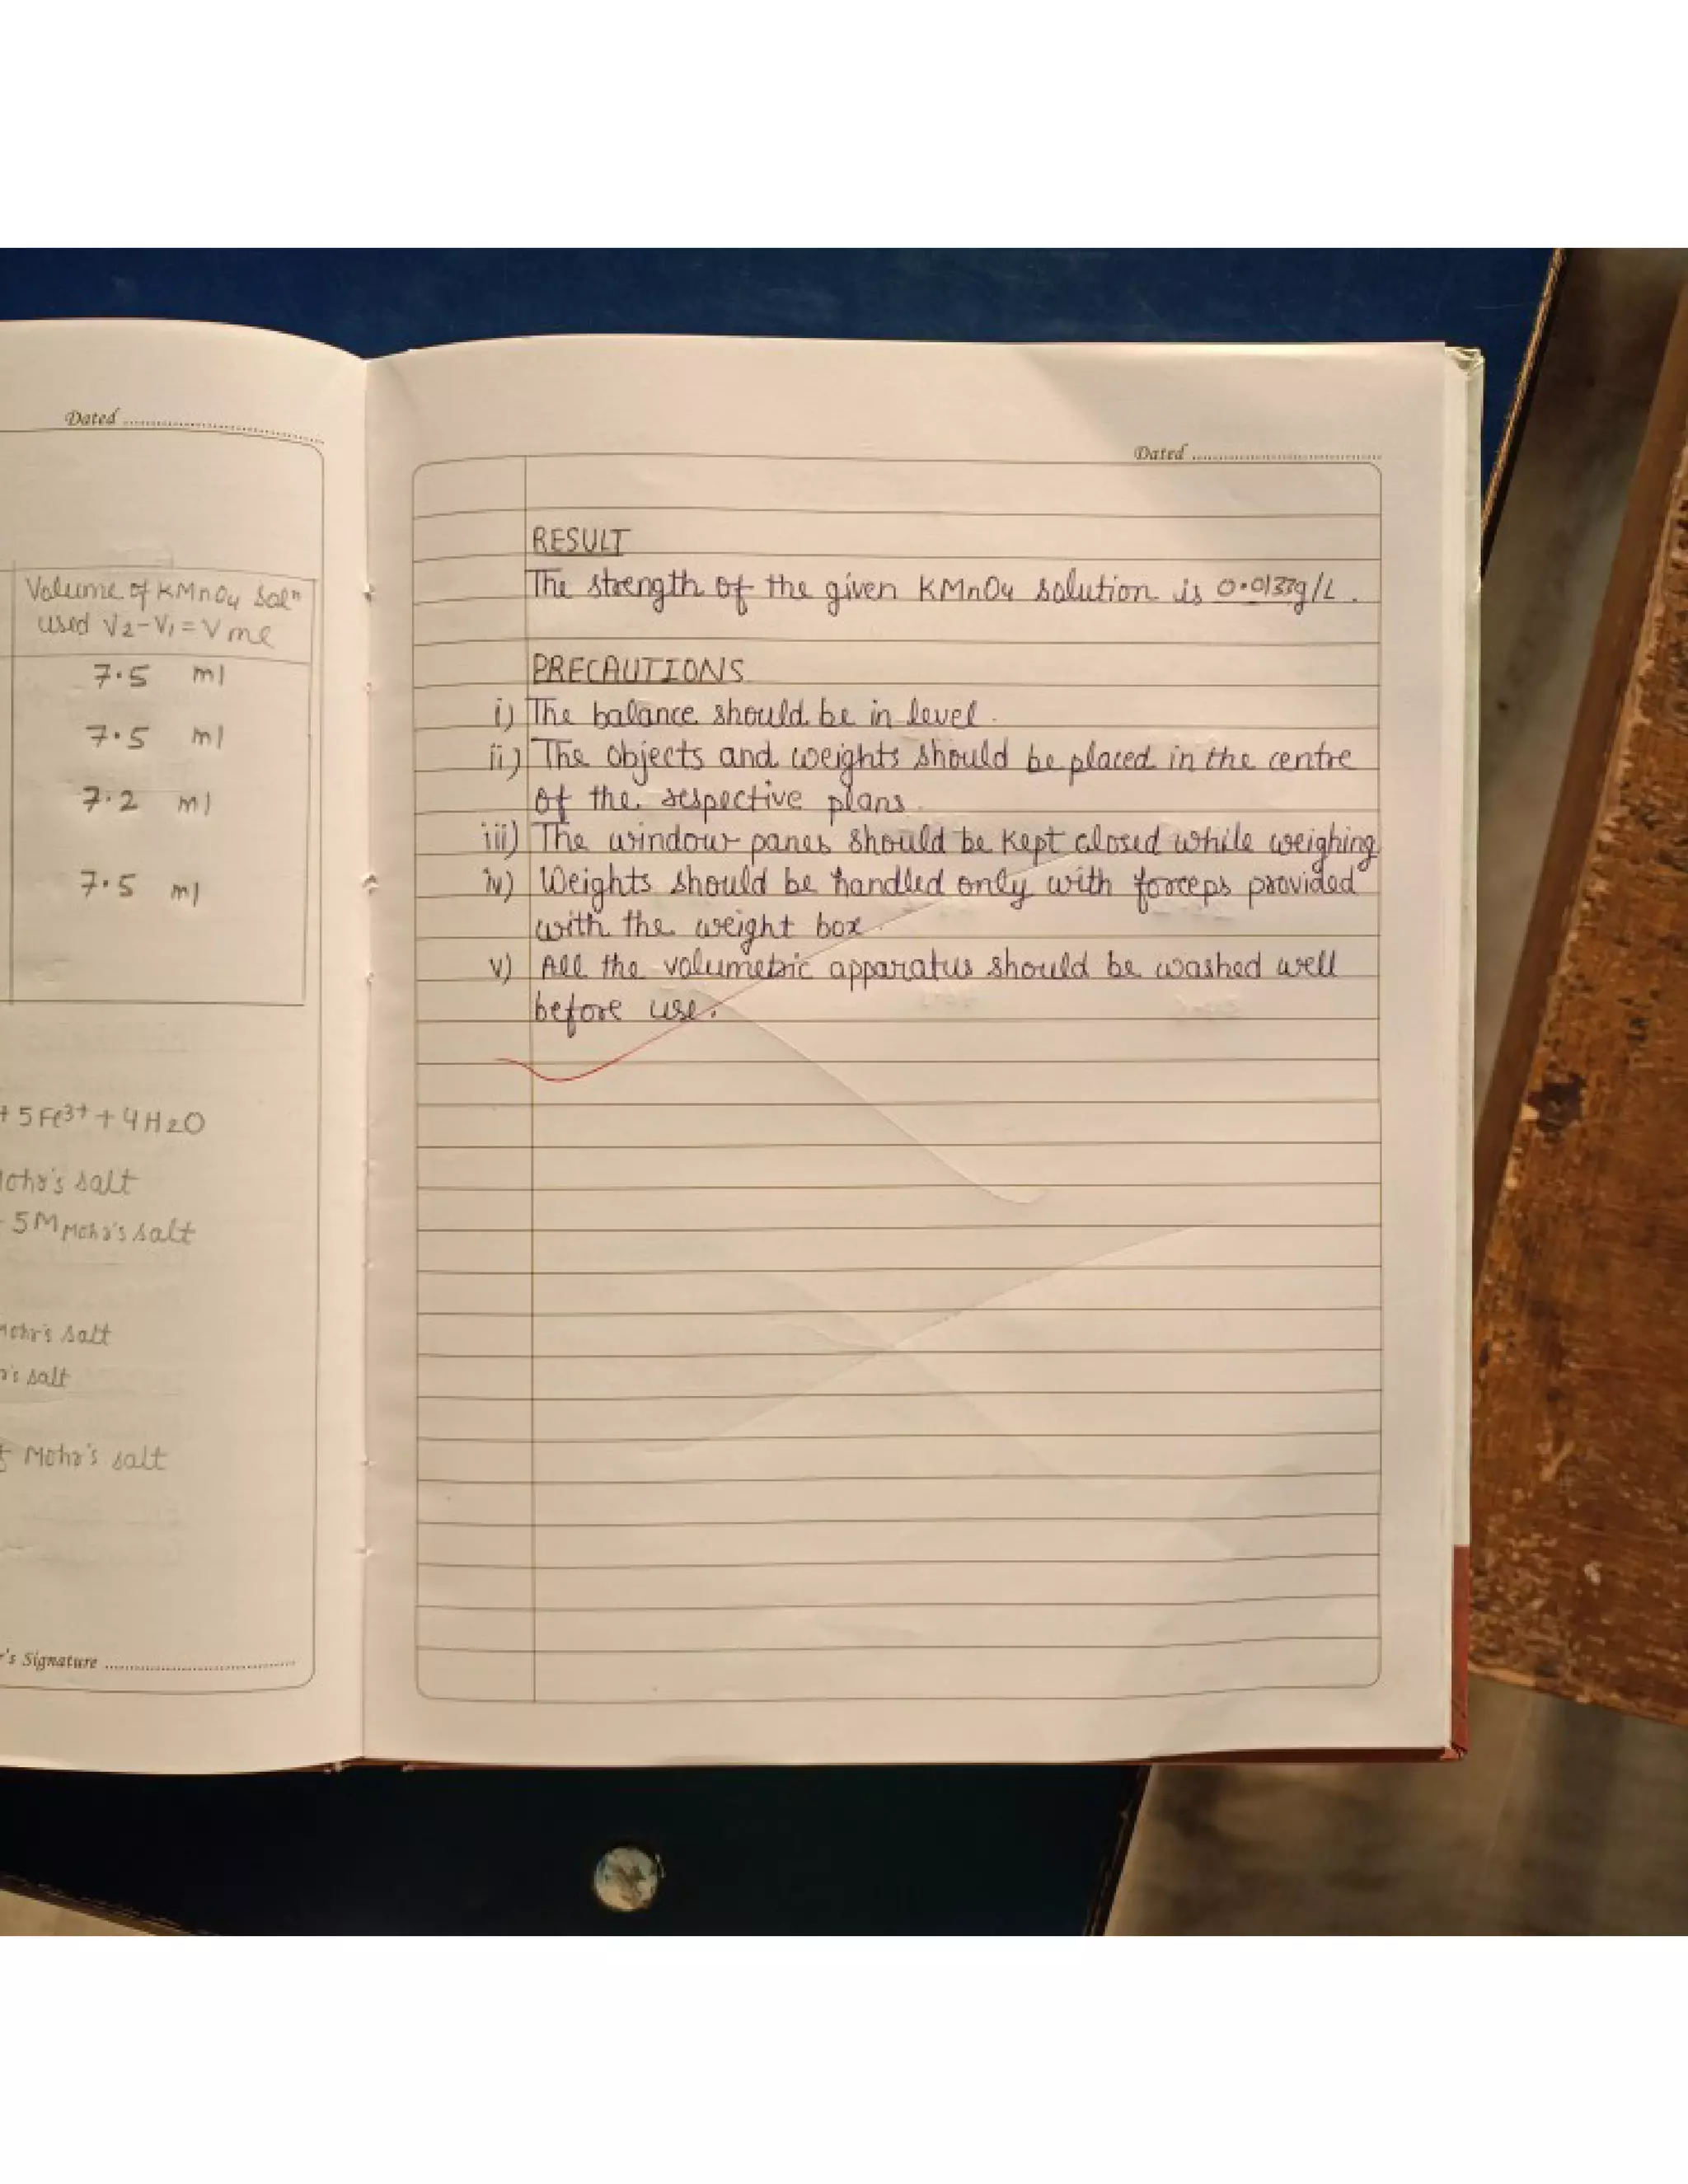 Dated
Volume of KMnO4 Solⁿ
used V2-V1 = V ml
7.5 ml
7.5 ml
7.2 ml
7.5 ml
+ 5Fe3+ + 4H2O
Mohr's salt
5M Mohr's salt
Mohr's salt
r's salt
Mohr's salt
r's Signature
Dated
RESULT
The strength of the given KMnO4 solution is 0.0133g/L.
PRECAUTIONS
i) The balance should be in level.
ii) The objects and weights should be placed in the centre
of the respective plans.
iii) The window panes should be kept closed while weighing
iv) Weights should be handled only with forceps provided
with the weight box.
v) All the volumetric apparatus should be washed well
before use.